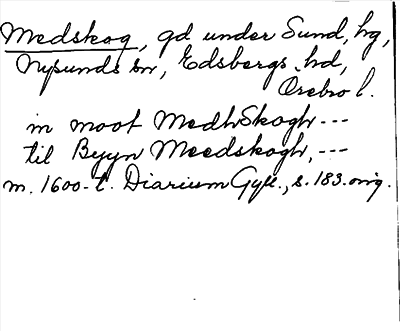 Medskog, gd under Sund, hg,
Nysunds sn, Edsbergs hd,
Örebro l.
in moot MedhSkogh ---
til Byyn Meedskogh, ---
m. 1600-t. Diarium Gyll., s. 183. orig.